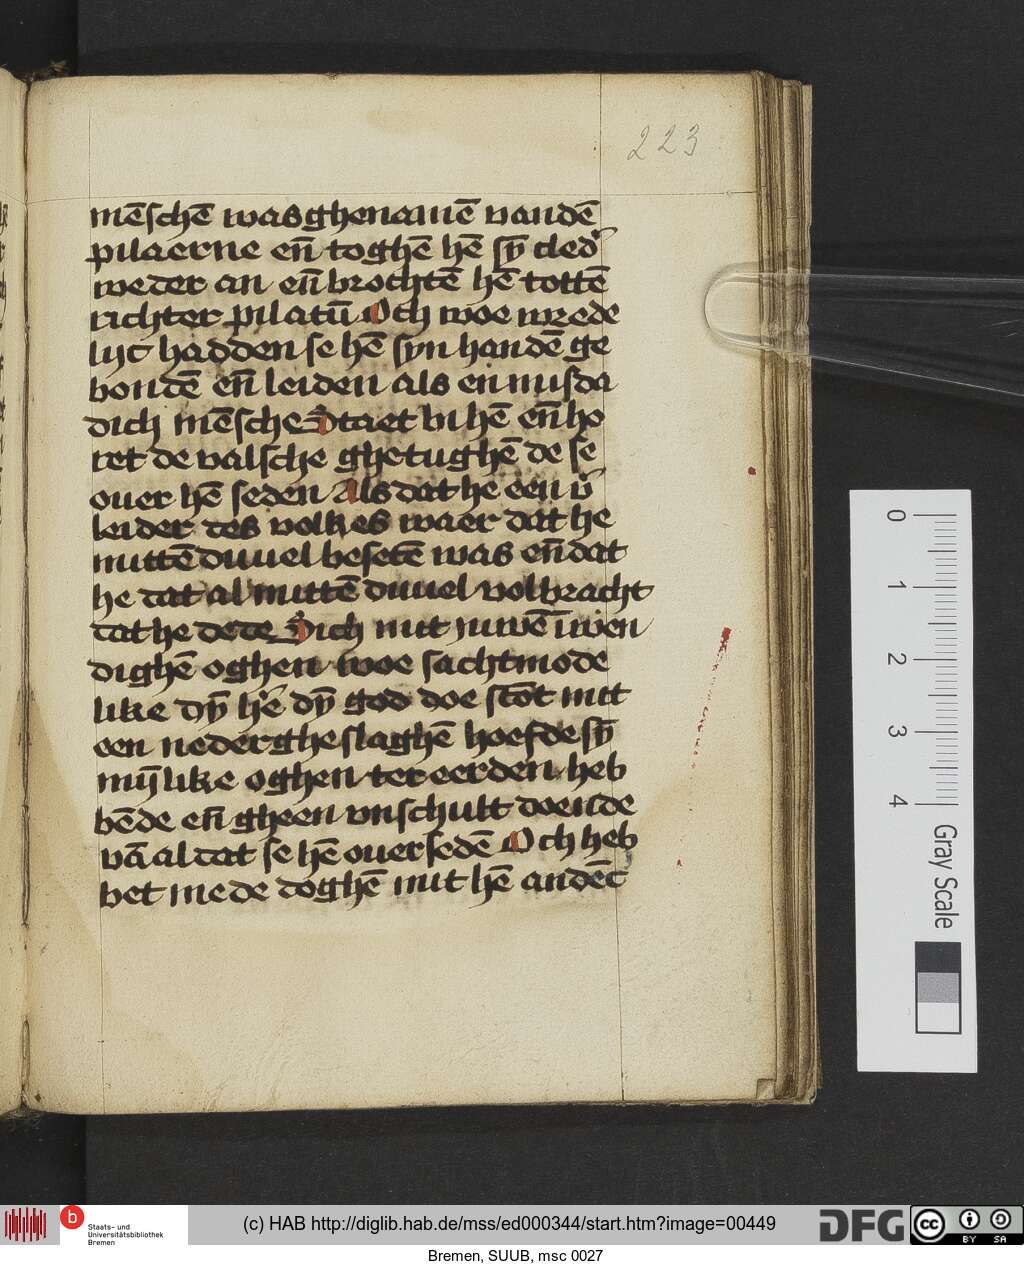 223
mēschē was ghenamē vandē
pilaerne en̄ toghē hē sȳ cleder
weder an en̄ brochtē hē tottē
richter pilatū Och woe wrede
lijc hadden se hē syn handē ge
bondē en̄ leiden als en misda
dich mēsche Staet bi hē en̄ ho
ret de valsche ghetughē de se
ouer hē seden Als dat he een v̄
leider des volkes waer dat he
mittē duuel besetē was en̄ dat
he dat al mittē duuel volbracht
dat he dede Sich mit juwē īwen
dighē oghen woe sachtmode
like dȳ hē dȳ god doe stōt mit
een nederghe slaghē hoefde sȳ
mȳlike oghen ter eerden heb
bēde en̄ gheen vnschult doende
vā al dat se hē ouer sedē Och heb
bet mede doghē mit hē andēc
0
1
2
3
4
Gray Scale
b Staats- und
Universitätsbibliothek
Bremen
(c) HAB http://diglib.hab.de/mss/ed000344/start.htm?image=00449
DFG
cc BY SA
Bremen, SUUB, msc 0027